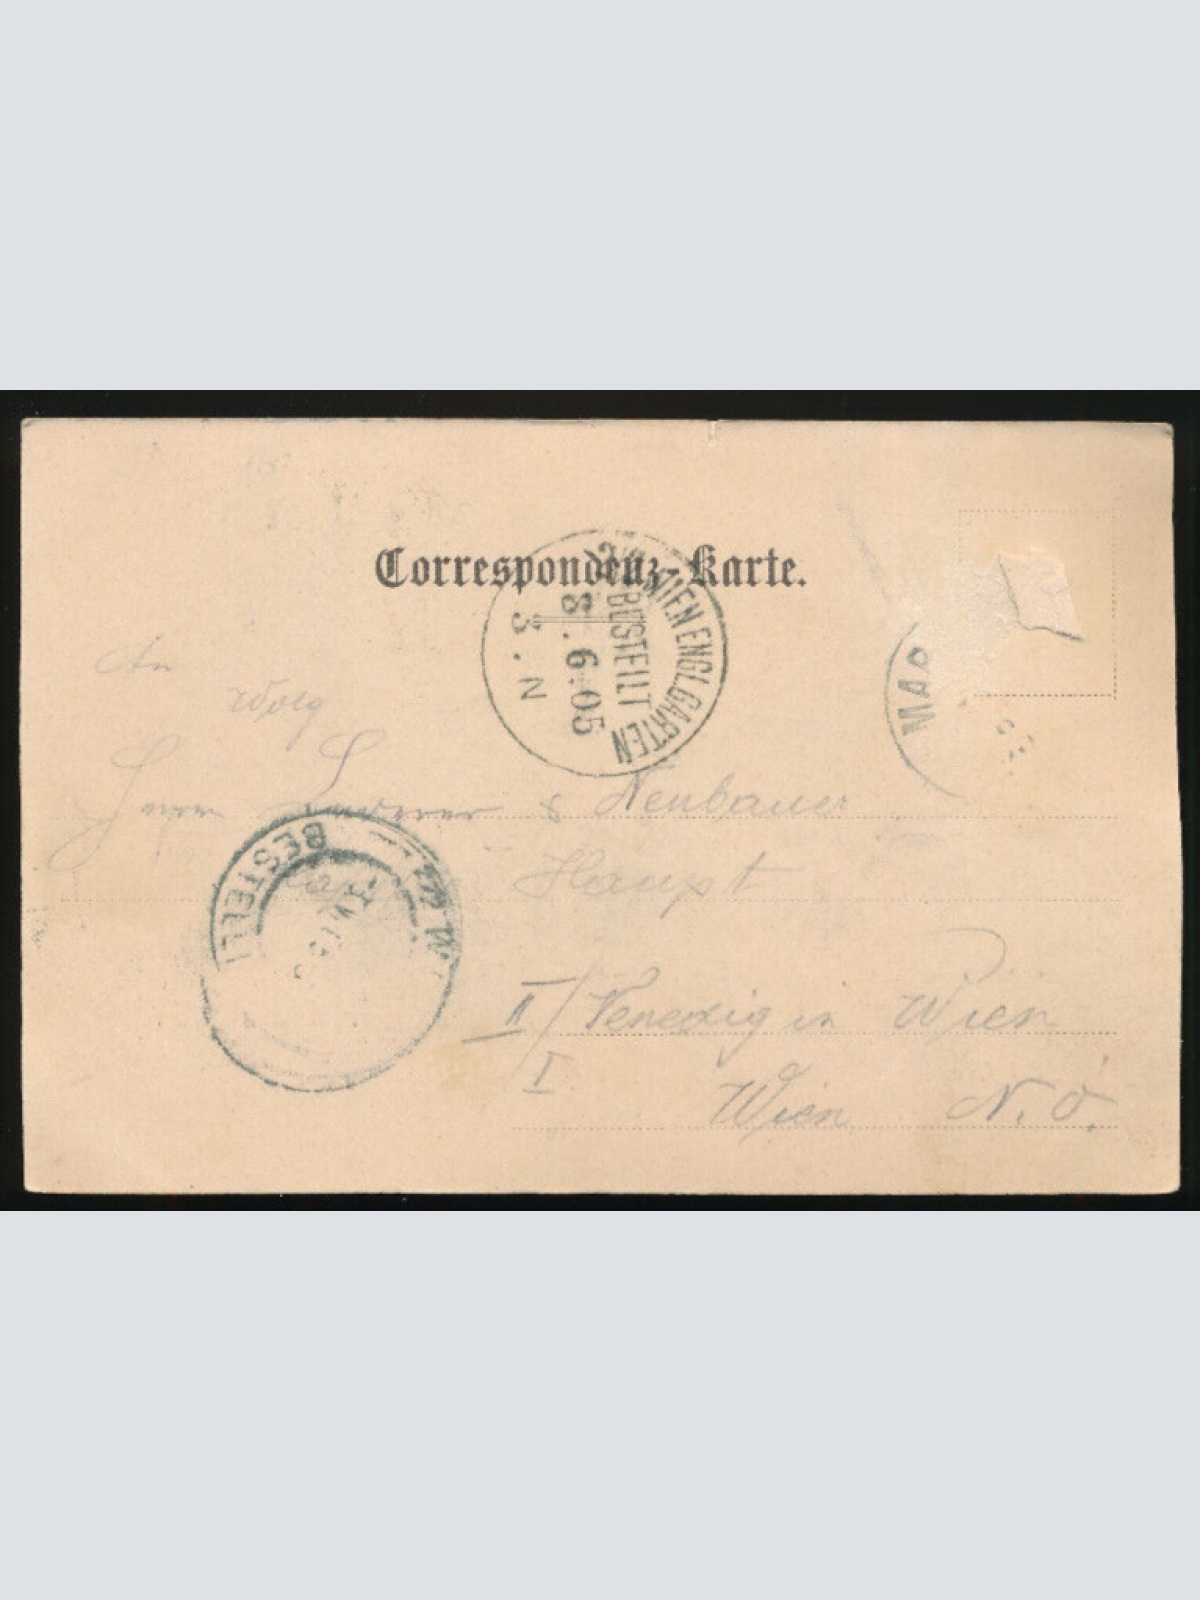 Correspondenz-Karte.
WIEN ENGL. GARTEN
BESTELLT
8.6.05
3.N
MAR
An
Herrn & Neubauer
Haupt
BESTELLT
2/2 W
II/ Venedig in Wien
I
Wien N.Ö.